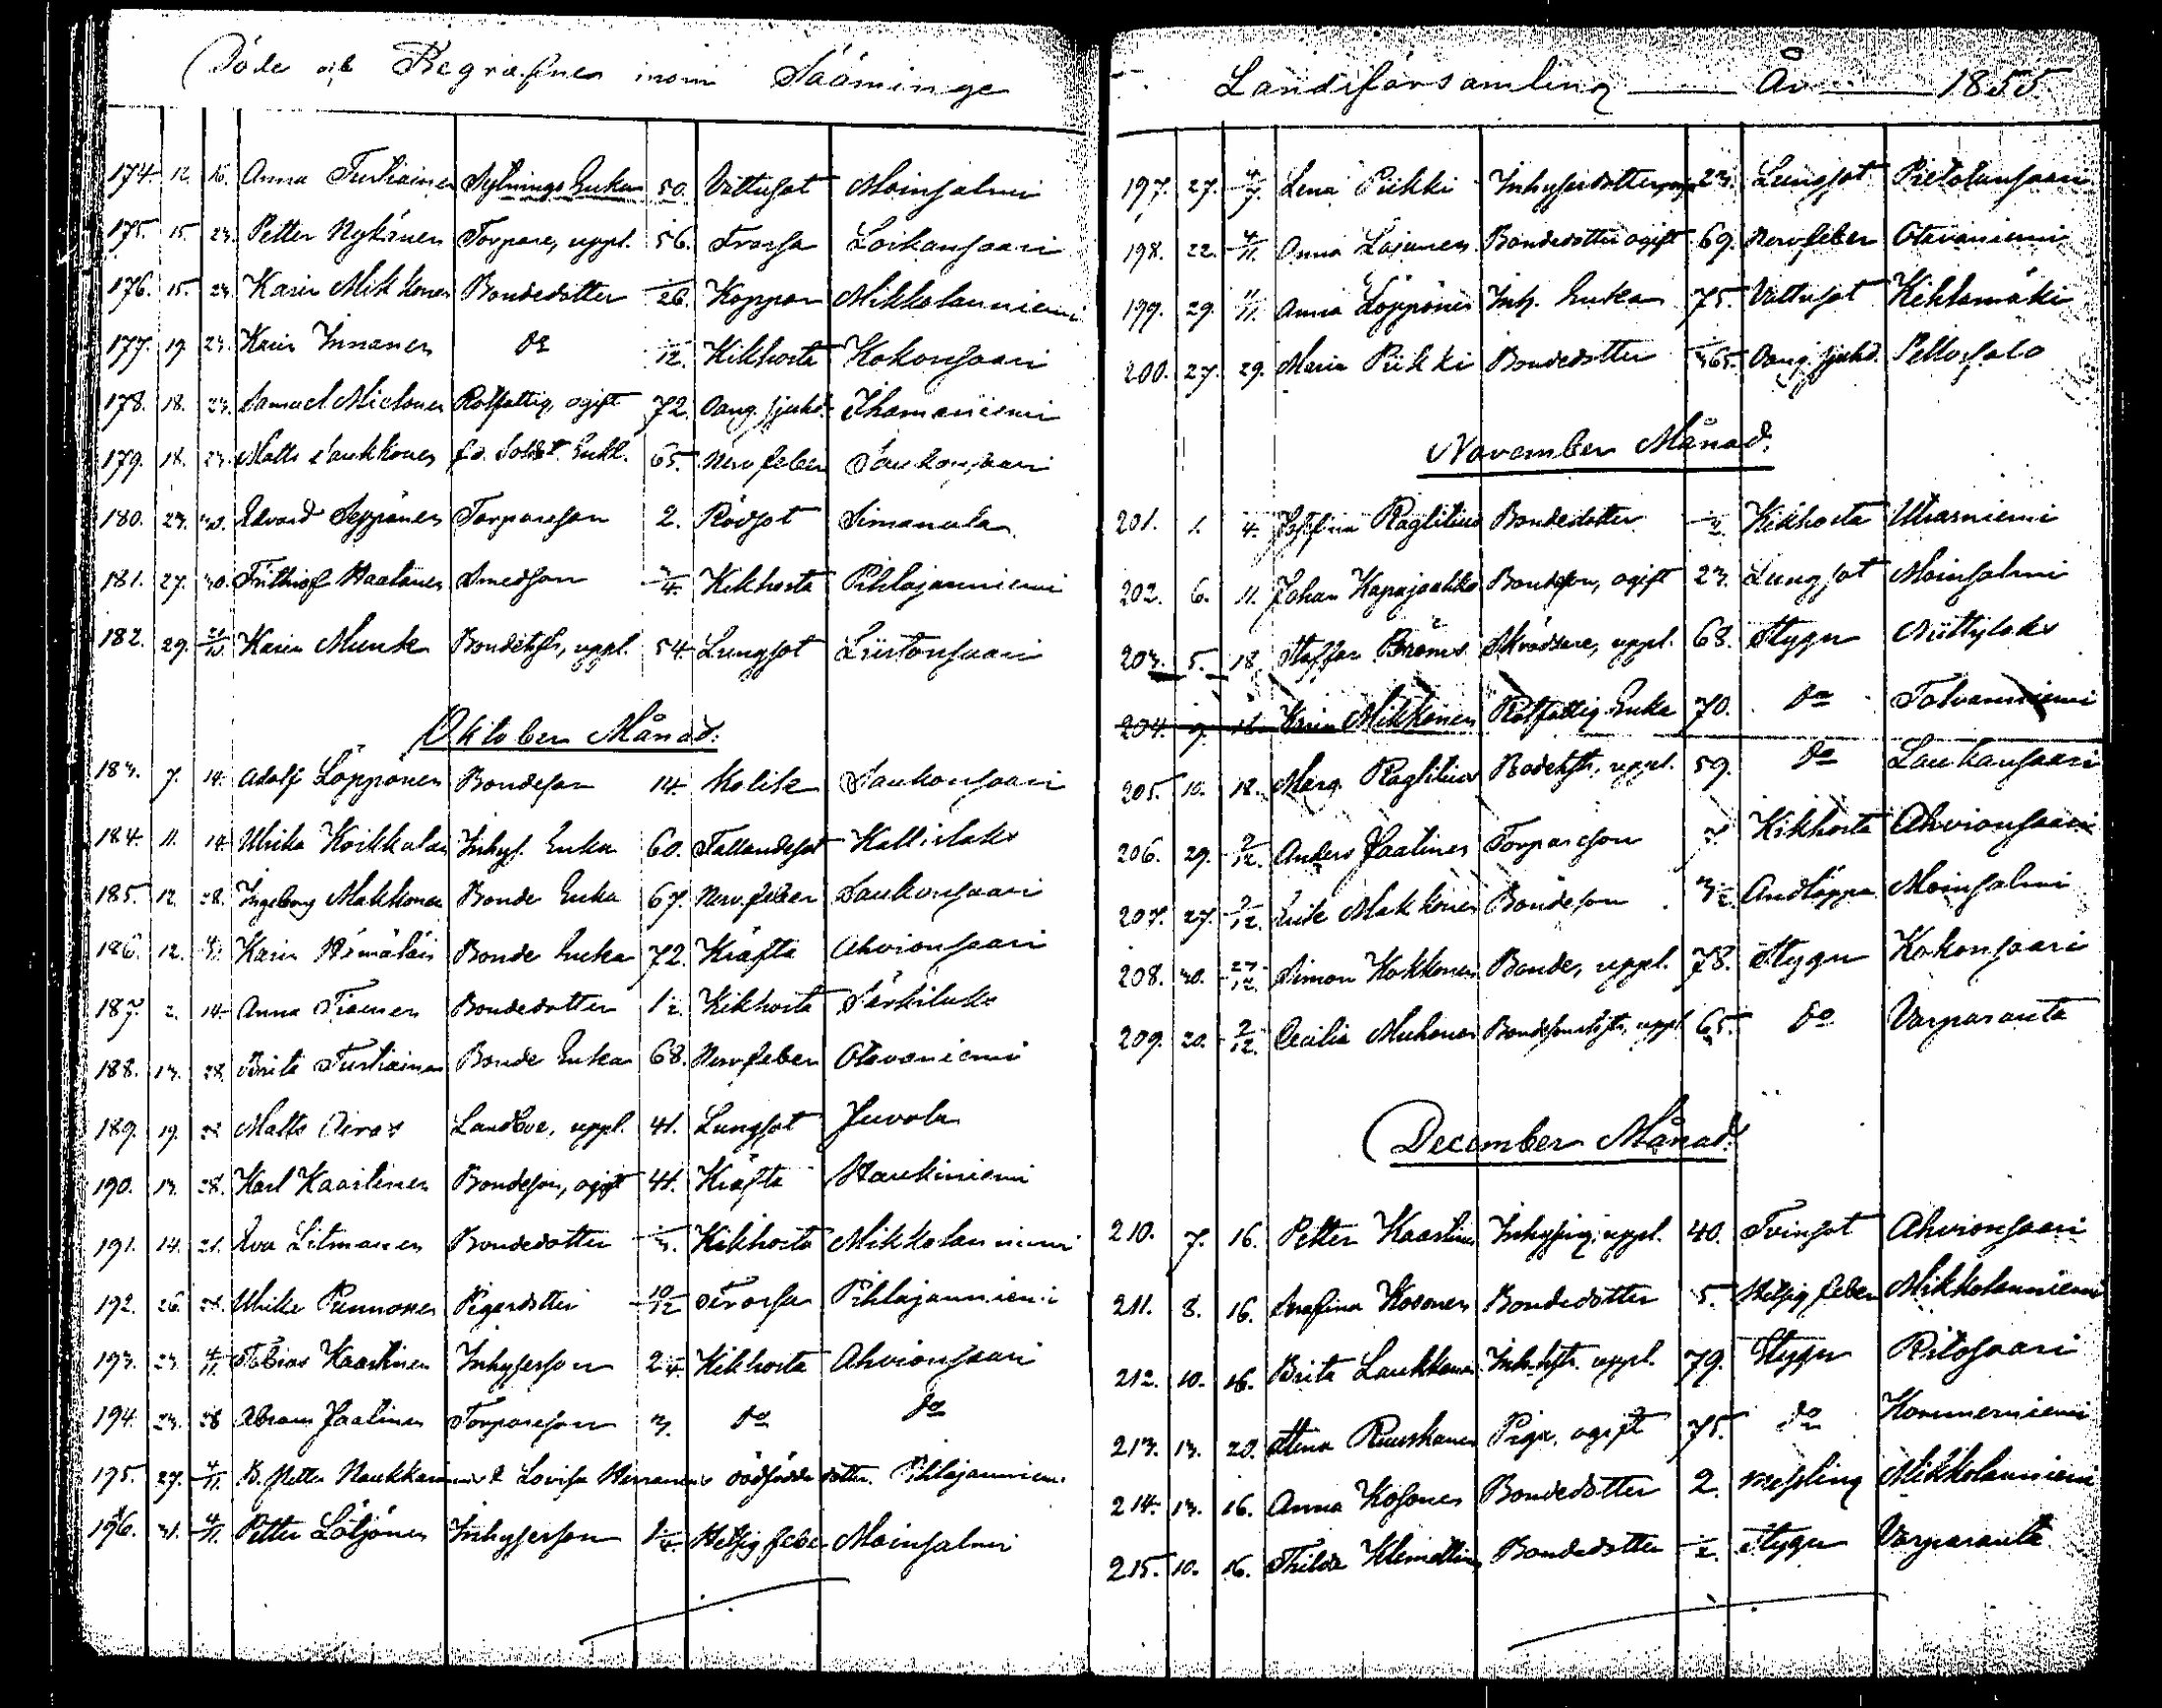 Döde och Begrafne inom Sääminge
174. 12. 16. Anna Turtiainen Sytnings Enka 50. Vattusot Moinsalmi
175. 15. 23. Petter Nykänen Torpare, uppl. 56. Frossa Loikansaari
176. 15. 23. Karin Mikkonen Bondedotter 26. Koppor Mikkolanniemi
177. 19. 23. Karin Innanen do 12. Kikhosta Kokonsaari
178. 18. 23. Samuel Mielonen Rotfattig, ogift 72. Oang. sjukd. Ihamaniemi
179. 18. 23. Matts Laukkonen f.d. Soldat Enkl. 65. Nervfeber Saukonsaari
180. 23. 30. Edvard Seppänen Torpareson 2. Rödsot Simanala
181. 27. 30. Frithiof Haatanen Smedson 3/4. Kikhosta Pihlajanniemi
182. 29. 21/10 Karin Munk Bondehustr, uppl. 54. Lungsot Liistonsaari
Oktober Månad.
183. 7. 14. Adolf Löppönen Bondeson 14. Kolik Saukonsaari
184. 11. 14. Ulrika Koikkalain Inhys. Enka 60. Fallandesot Kallislaks
185. 12. 28. Ingeborg Makkonen Bonde Enka 67. Nervfeber Saukonsaari
186. 12. 4/11. Karin Hämäläin Bonde Enka 72. Kräfta Ahvionsaari
187. 2. 14. Anna Tiainen Bondedotter 1 1/2. Kikhosta Särkilaks
188. 13. 28. Brita Turtiainen Bonde Enka 68. Nervfeber Otavaniemi
189. 19. 28. Matts Airas Landbo, uppl. 41. Lungsot Juvola
190. 13. 28. Karl Kaartinen Bondeson, ogift 41. Kräfta Haukiniemi
191. 14. 21. Eva Litmanen Bondedotter Kikhosta Mikkolanniemi
192. 26. 28. Ulrika Punnonen Pigedotter 10/12 Frossa Pihlajanniemi
193. 23. 4/11. Tobias Kaartinen Inhyseson 2 1/4. Kikhosta Ahvionsaari
194. 23. 28 Abram Jaatinen Torpareson 3. do do
195. 27. 4/11. B. Petter Naukkarinens & Lovisa dödfödde dotter. Pihlajanniemi
196. 31. 4/11. Petter Lötjönen Inhyseson 1/4. Hetsig feber Moinsalmi
Landsförsamling År 1855
197. 27. 4/7. Lena Piikki Inhysesdotter, 23. Lungsot Pietolansaari
198. 22. 4/11. Anna Lajunen Bondedotter ogift 69. Nervfeber Otavaniemi
199. 29. 11/11. Anna Löppönen Inh. Enka 75. Vattusot Kiklamäki
200. 27. 29. Maria Piikki Bondedotter Oang. sjukd. Pellossalo
November Månad.
201. 1. 4. Josefina Raglitius Bondedotter 1/2. Kikhosta Utrasniemi
202. 6. 11. Johan Kapajaakko Bondeson, ogift 23. Lungsot Moinsalmi
203. 5. 18. Staffan Broms Skräddare, uppl. 68. Stygn Niittylaks
204. 9. 18. Karin Mikkonen Rotfattig Enka 70. do Tolvanniemi
205. 10. 18. Marg. Raglitius Bodehustr, uppl. 59. do Laukansaari
206. 29. 2/12. Anders Jaatinen Torpareson 7. Kikhosta Ahvionsaari
207. 27. 2/12. Erik Makkonen Bondeson 3 1/2. Andtäppa Moinsalmi
208. 30. 27/12. Simon Kokkonen Bonde, uppl. 78. Stygn Kokonsaari
209. 20. 2/12. Cecilia Muhonen Bondesonshustr, uppl. 65. do Varparanta
December Månad.
210. 7. 16. Petter Kaartinen Inhysing, uppl. 40. Tvinsot Ahvionsaari
211. 8. 16. Serafina Kosonen Bondedotter 5. Hetsig feber Mikkolanniemi
212. 10. 16. Brita Laukkanen Inh.hustr. uppl. 79. Stygn Ritosaari
213. 13. 20. Stina Ruuskanen Piga, ogift 75. do Kommerniemi
214. 13. 16. Anna Kosonen Bondedotter 2. Messling Mikkolanniemi
215. 10. 16. Thilda Klemettinen Bondedotter 1/2. Stygn Varparanta